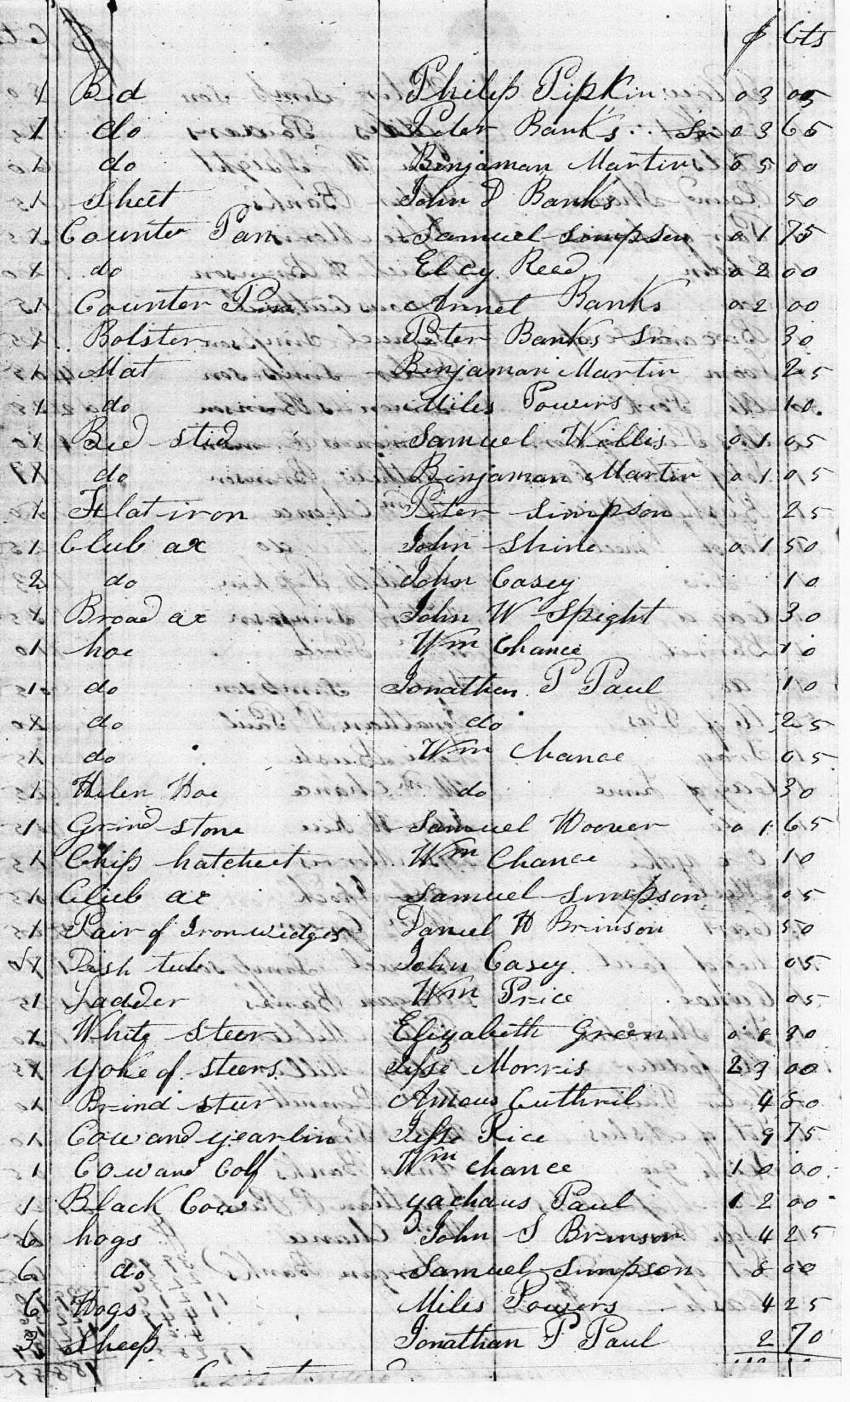 $ $ Cts
1 Bed Philip Pipkin 03 05
1 do Peter Banks Sr 03 65
1 do Binjaman Martin 05 00
1 Sheet John D Banks 50
1 Counter Pan Samuel Simpson 01 75
1 do Elcy Reed 02 00
1 Counter Pan Annet Banks 02 00
1 Bolster Peter Banks Sr 30
1 Mat Binjaman Martin 25
1 do Miles Powers 10
1 Bed stid Samuel Willis 01 05
1 do Binjaman Martin 01 05
1 Flat iron Peter Simpson 25
1 Club ax John Shine 01 50
2 do John Casey 10
1 Broad ax John W Spight 30
1 hoe Wm Chance 10
1 do Jonathan P Paul 10
1 do do 25
1 do Wm Chance 05
1 Hilen Hoe do 30
1 Grind stone Samuel Hoover 01 65
1 Chip hatchet Wm Chance 10
1 Club ax Samuel Simpson 05
1 Pair of Iron widges Daniel H Brinson 50
1 tub John Casey 05
1 Ladder Wm Price 05
1 White Steer Elizabeth Green 08 30
1 yoke of steers Jesse Morris 23 00
1 Brind stur Amous Cuthril 4 80
1 Cow and yearlin Jesse Rice 9 75
1 Cow and Colf Wm Chance 10 00
1 Black Cow yachaus Paul 12 00
6 hogs John S Brinson 4 25
6 do Samuel Simpson 8 00
6 Hogs Miles Powers 4 25
Sheep Jonathan P Paul 2 70